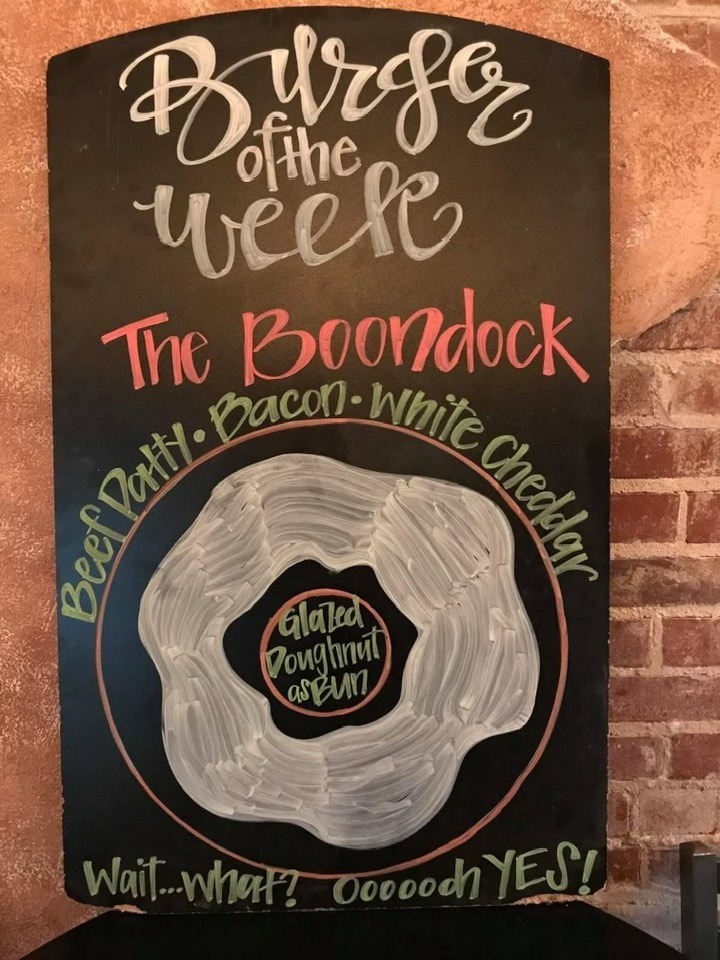 Burger
of the
Week
The Boondock
Beef Patty • Bacon • White Cheddar
Glazed
Doughnut
as Bun
Wait...what? Ooooooh YES!